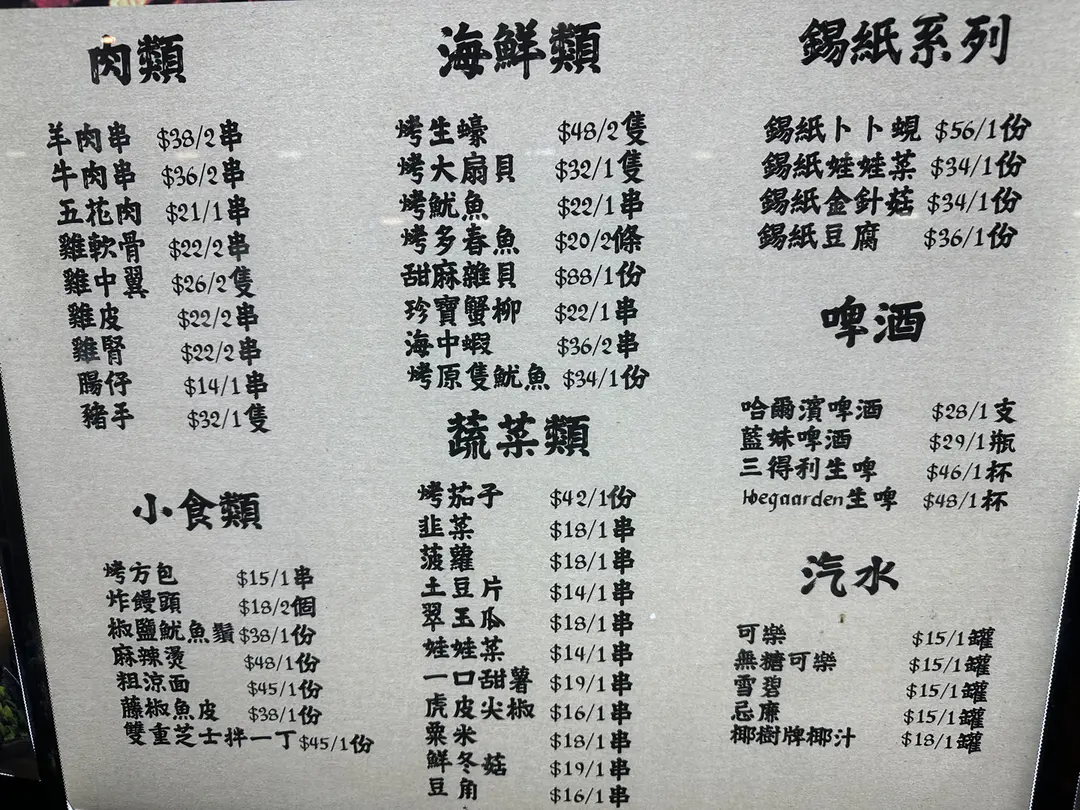 肉類
羊肉串 $38/2串
牛肉串 $36/2串
五花肉 $21/1串
雞軟骨 $22/2串
雞中翼 $26/2隻
雞皮 $22/2串
雞腎 $22/2串
腸仔 $14/1串
豬手 $32/1隻
小食類
烤方包 $15/1串
炸饅頭 $18/2個
椒鹽魷魚鬚 $38/1份
麻辣燙 $48/1份
粗涼面 $45/1份
藤椒魚皮 $38/1份
雙重芝士拌一丁 $45/1份
海鮮類
烤生蠔 $48/2隻
烤大扇貝 $32/1隻
烤魷魚 $22/1串
烤多春魚 $20/2條
甜麻雜貝 $88/1份
珍寶蟹柳 $22/1串
海中蝦 $36/2串
烤原隻魷魚 $34/1份
蔬菜類
烤茄子 $42/1份
韭菜 $18/1串
菠蘿 $18/1串
土豆片 $14/1串
翠玉瓜 $18/1串
娃娃菜 $14/1串
一口甜薯 $19/1串
虎皮尖椒 $16/1串
粟米 $18/1串
鮮冬菇 $19/1串
豆角 $16/1串
錫紙系列
錫紙卜卜蜆 $56/1份
錫紙娃娃菜 $34/1份
錫紙金針菇 $34/1份
錫紙豆腐 $36/1份
啤酒
哈爾濱啤酒 $28/1支
藍妹啤酒 $29/1瓶
三得利生啤 $46/1杯
Hoegaarden生啤 $48/1杯
汽水
可樂 $15/1罐
無糖可樂 $15/1罐
雪碧 $15/1罐
忌廉 $15/1罐
椰樹牌椰汁 $18/1罐